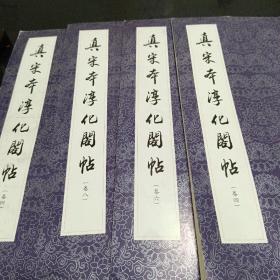 真宋本淳化閣帖
(卷四)
真宋本淳化閣帖
(卷八)
真宋本淳化閣帖
(卷六)
真宋本淳化閣帖
(卷四)